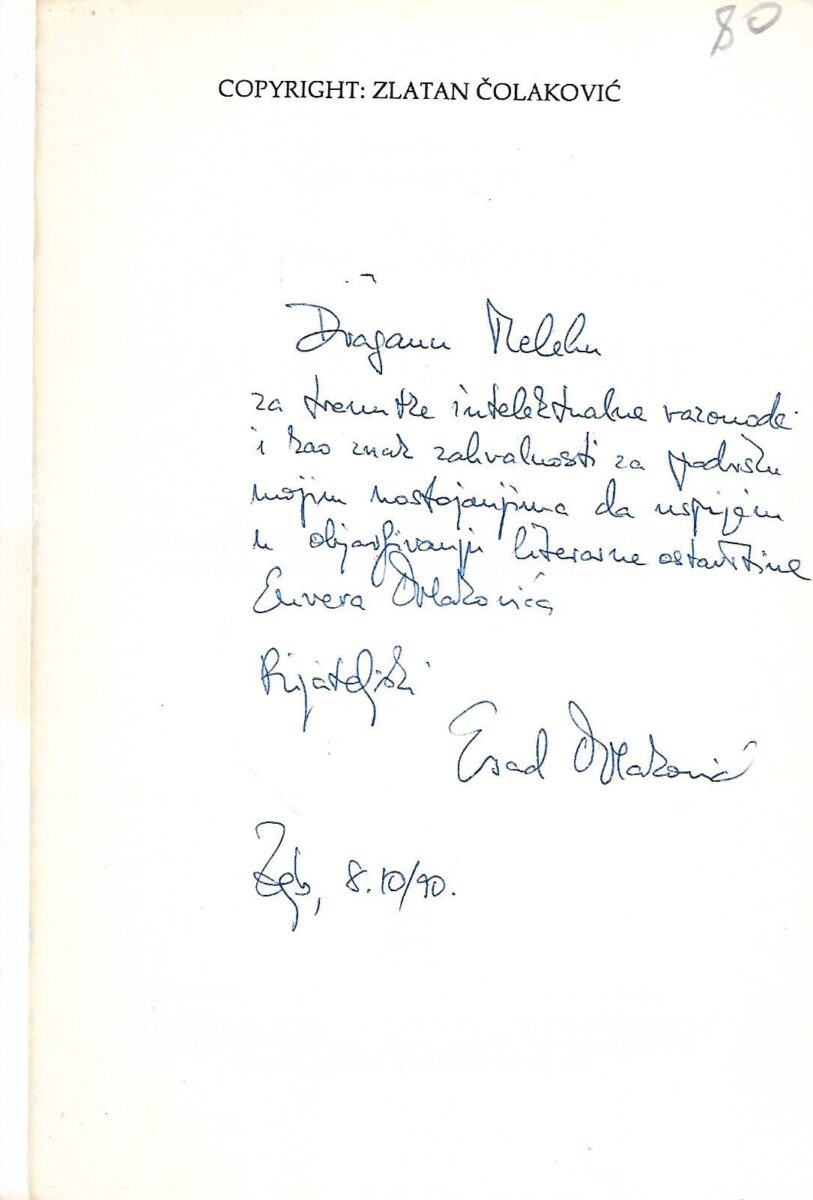 80
COPYRIGHT: ZLATAN ČOLAKOVIĆ
Draganu Melehu
za trenutke intelektualne razonode
i kao znak zahvalnosti za podršku
mojim nastojanjima da uspijem
u objavljivanju literarne ostavštine
Envera Čolakovića
Prijateljski
Esad Čolaković
Zgb, 8.10/90.